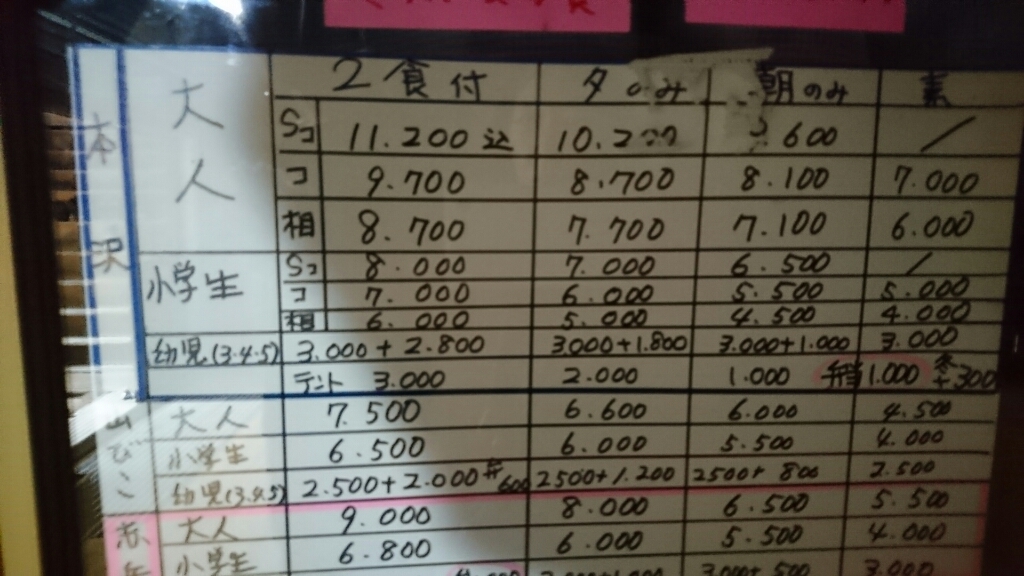 2食付 夕のみ 朝のみ 素
本沢 大人 Sコ 11.200込 10.2 600 /
コ 9.700 8.700 8.100 7.000
相 8.700 7.700 7.100 6.000
小学生 Sコ 8.000 7.000 6.500 /
コ 7.000 6.000 5.500 5.000
相 6.000 5.000 4.500 4.000
幼児(3.4.5) 3.000+2.800 3.000+1.800 3.000+1.000 3.000
テント 3.000 2.000 1.000 弁当1.000 冬+300
山びこ 大人 7.500 6.600 6.000 4.500
小学生 6.500 6.000 5.500 4.000
幼児(3.4.5) 2.500+2.000 弁600 2500+1.200 2500+800 2.500
大人 9.000 8.000 6.500 5.500
小学生 6.800 6.000 5.500 4.000